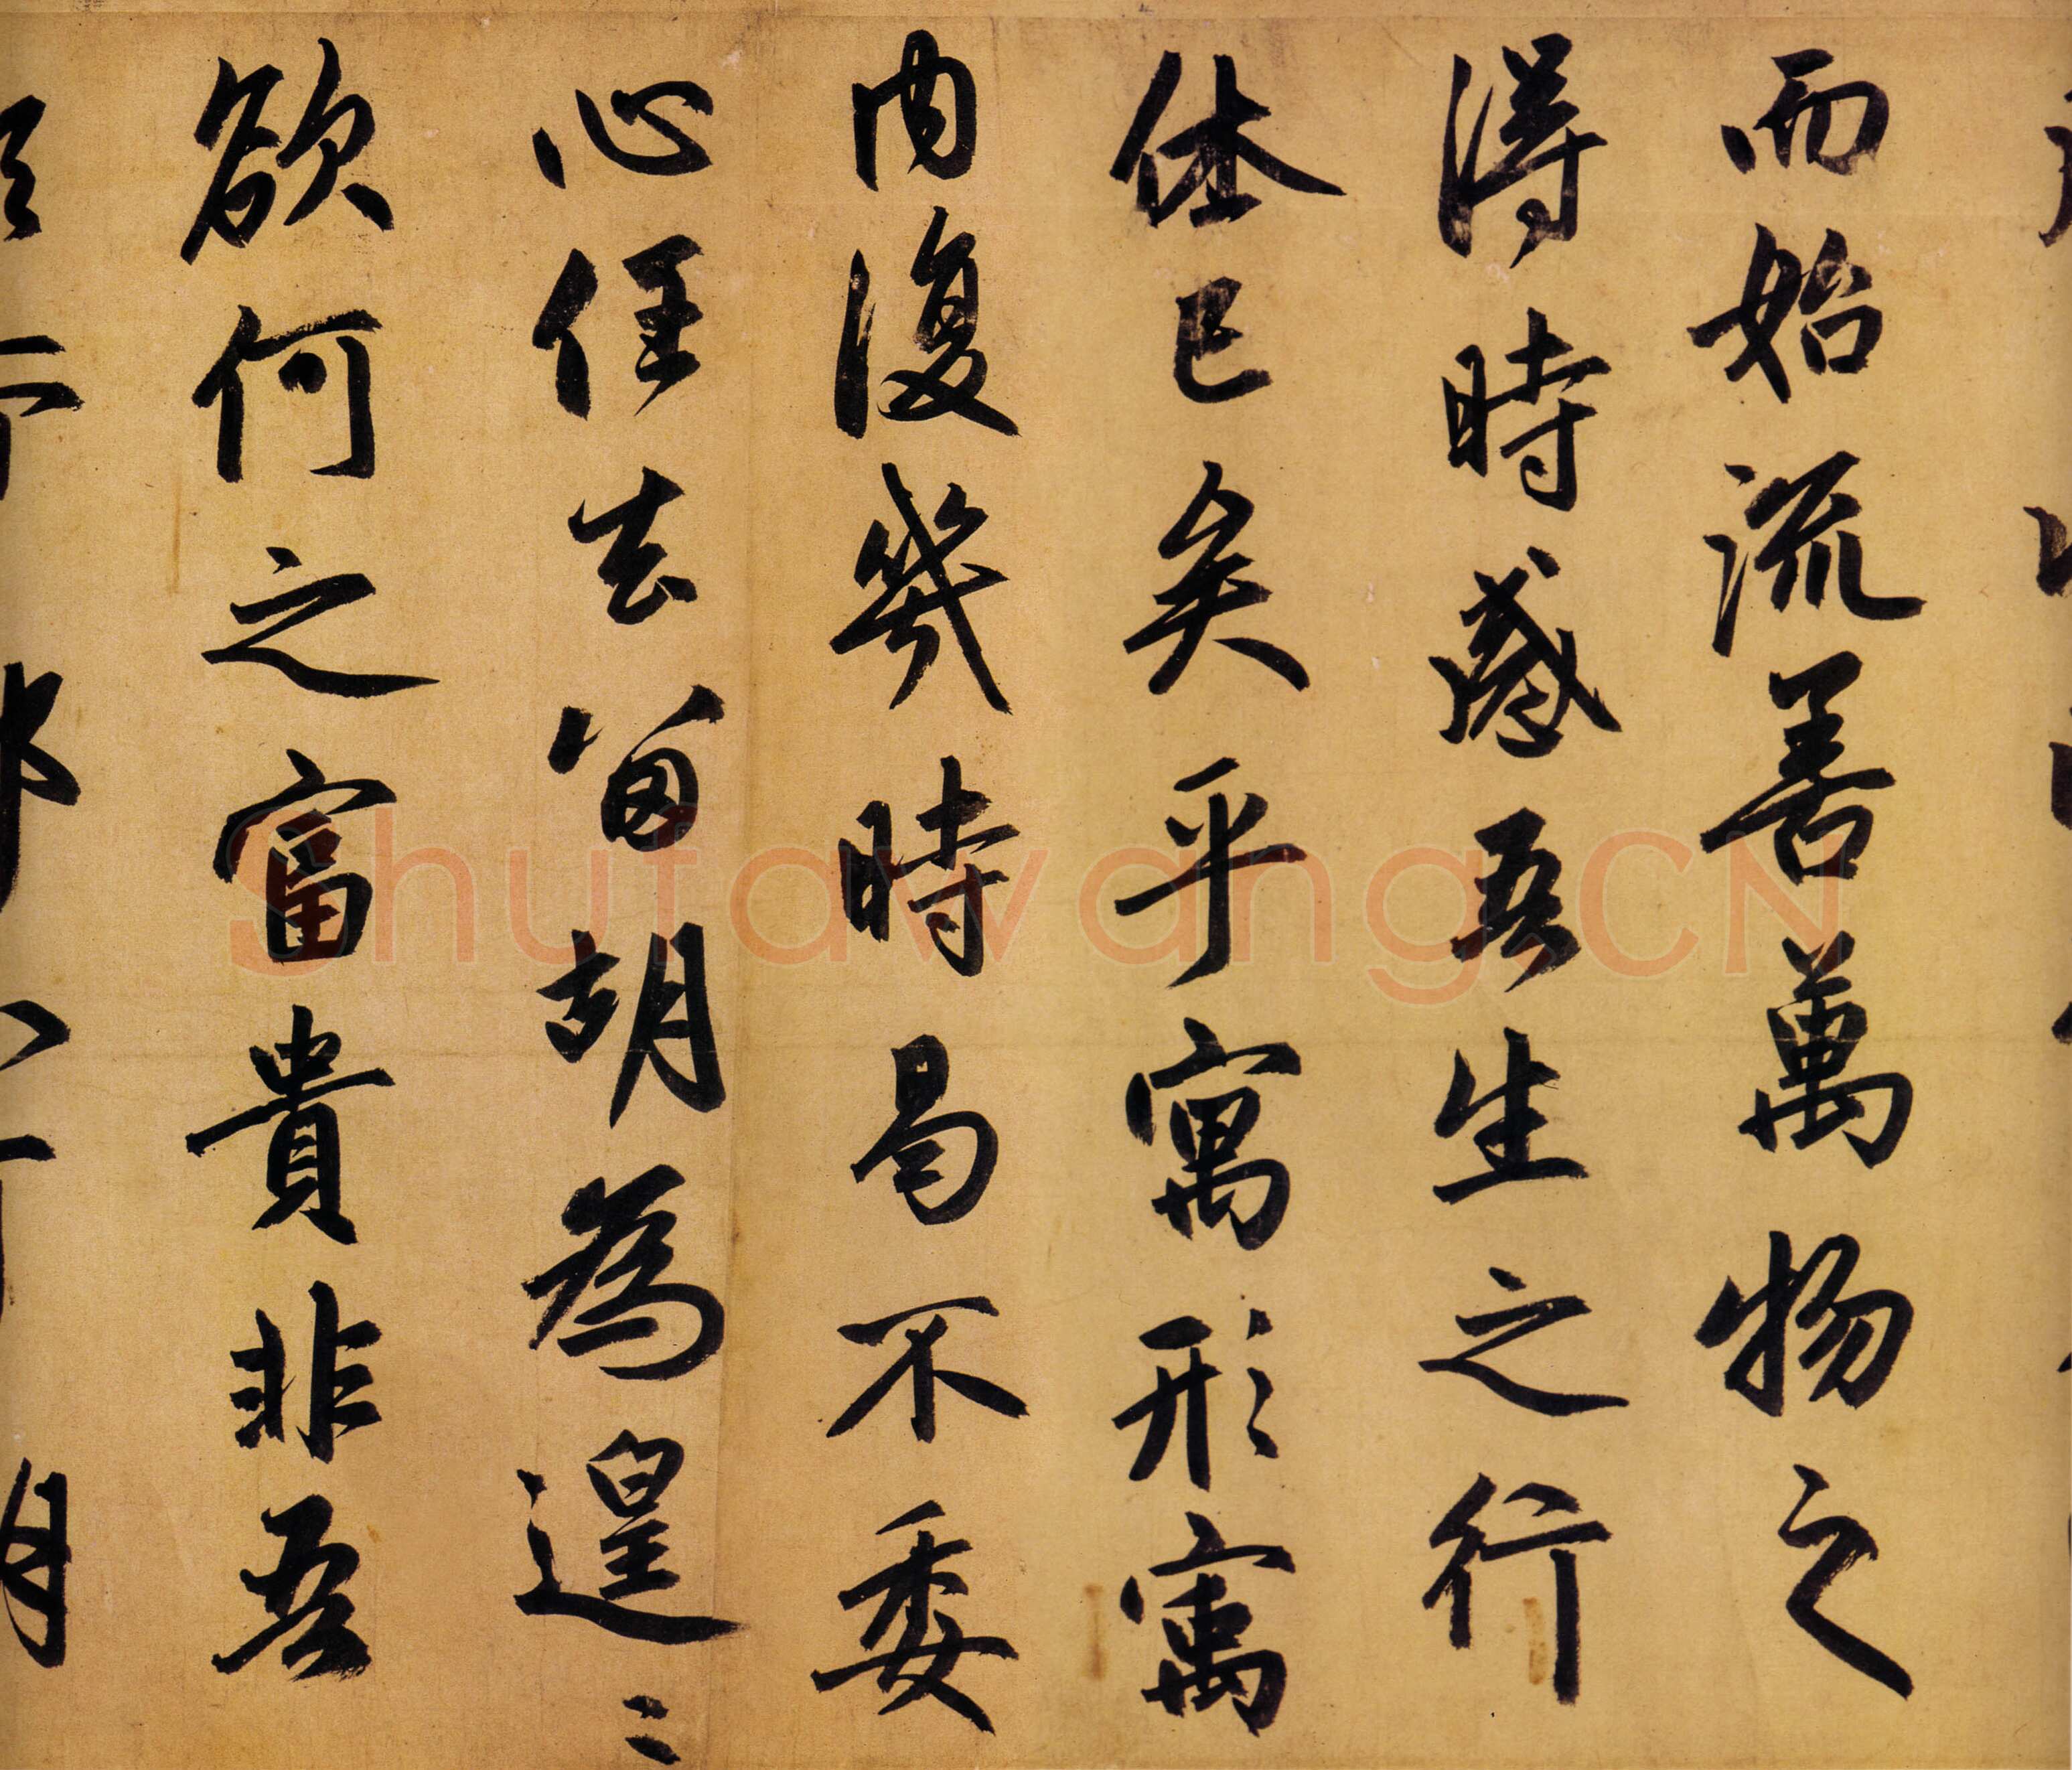 而始流善萬物之
得時感吾生之行
休已矣乎寓形寓
内復幾時曷不委
心任去留胡為遑〻
欲何之富貴非吾
Shufawang.CN